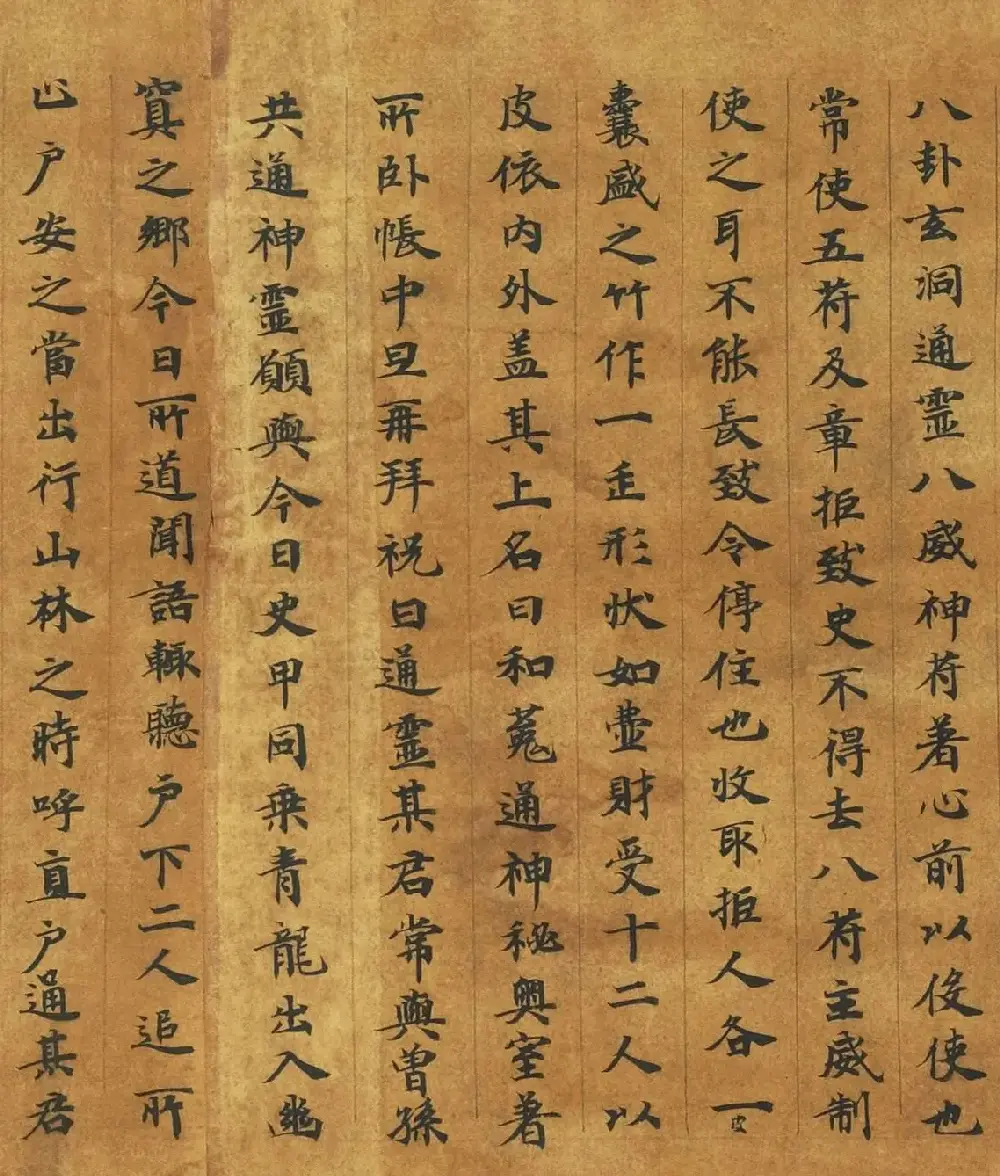 八卦玄洞通靈八威神苻著心前以伇使也
常使五苻及章拒致史不得去八苻主威制
使之耳不能長致令停住也收取拒人各一
囊盛之竹作一走形状如壷財受十二人以
皮依内外盖其上名曰和菟通神秘奥室著
所卧帳中旦再拜祝曰通靈某君常與曽孫
共通神靈願與今日史甲同乗青龍出入幽
㝠之鄉今日所道聞語輙聽户下二人追所
止户安之當出行山林之時呼直户通某君